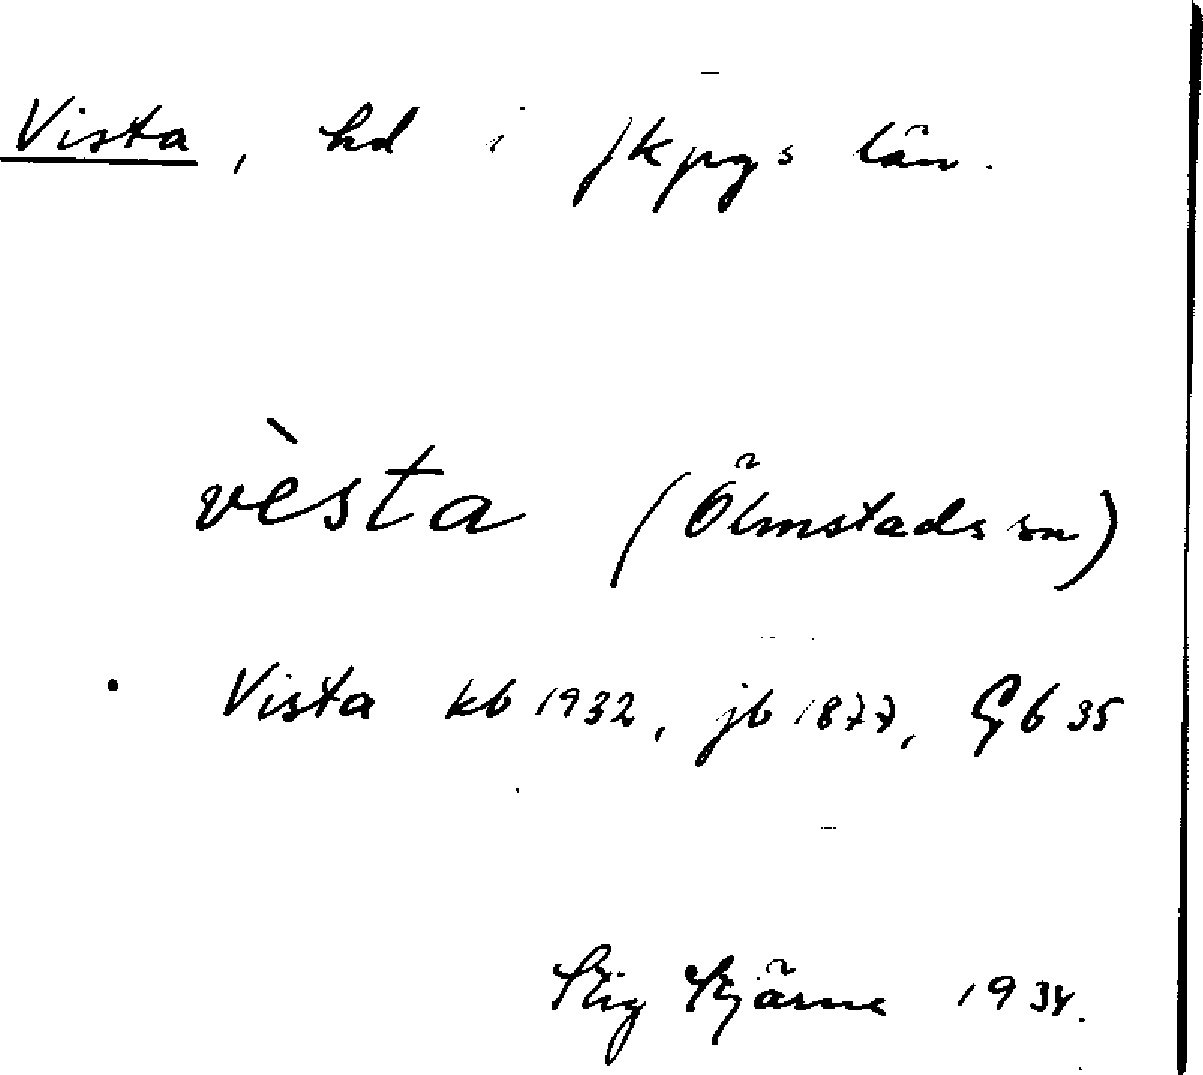 Vista, hd i Jkpgs län.
vèsta (Ölmstads sn)
Vista kb 1932, jb 1877, Gb 35
Stig Stjärne 1934.